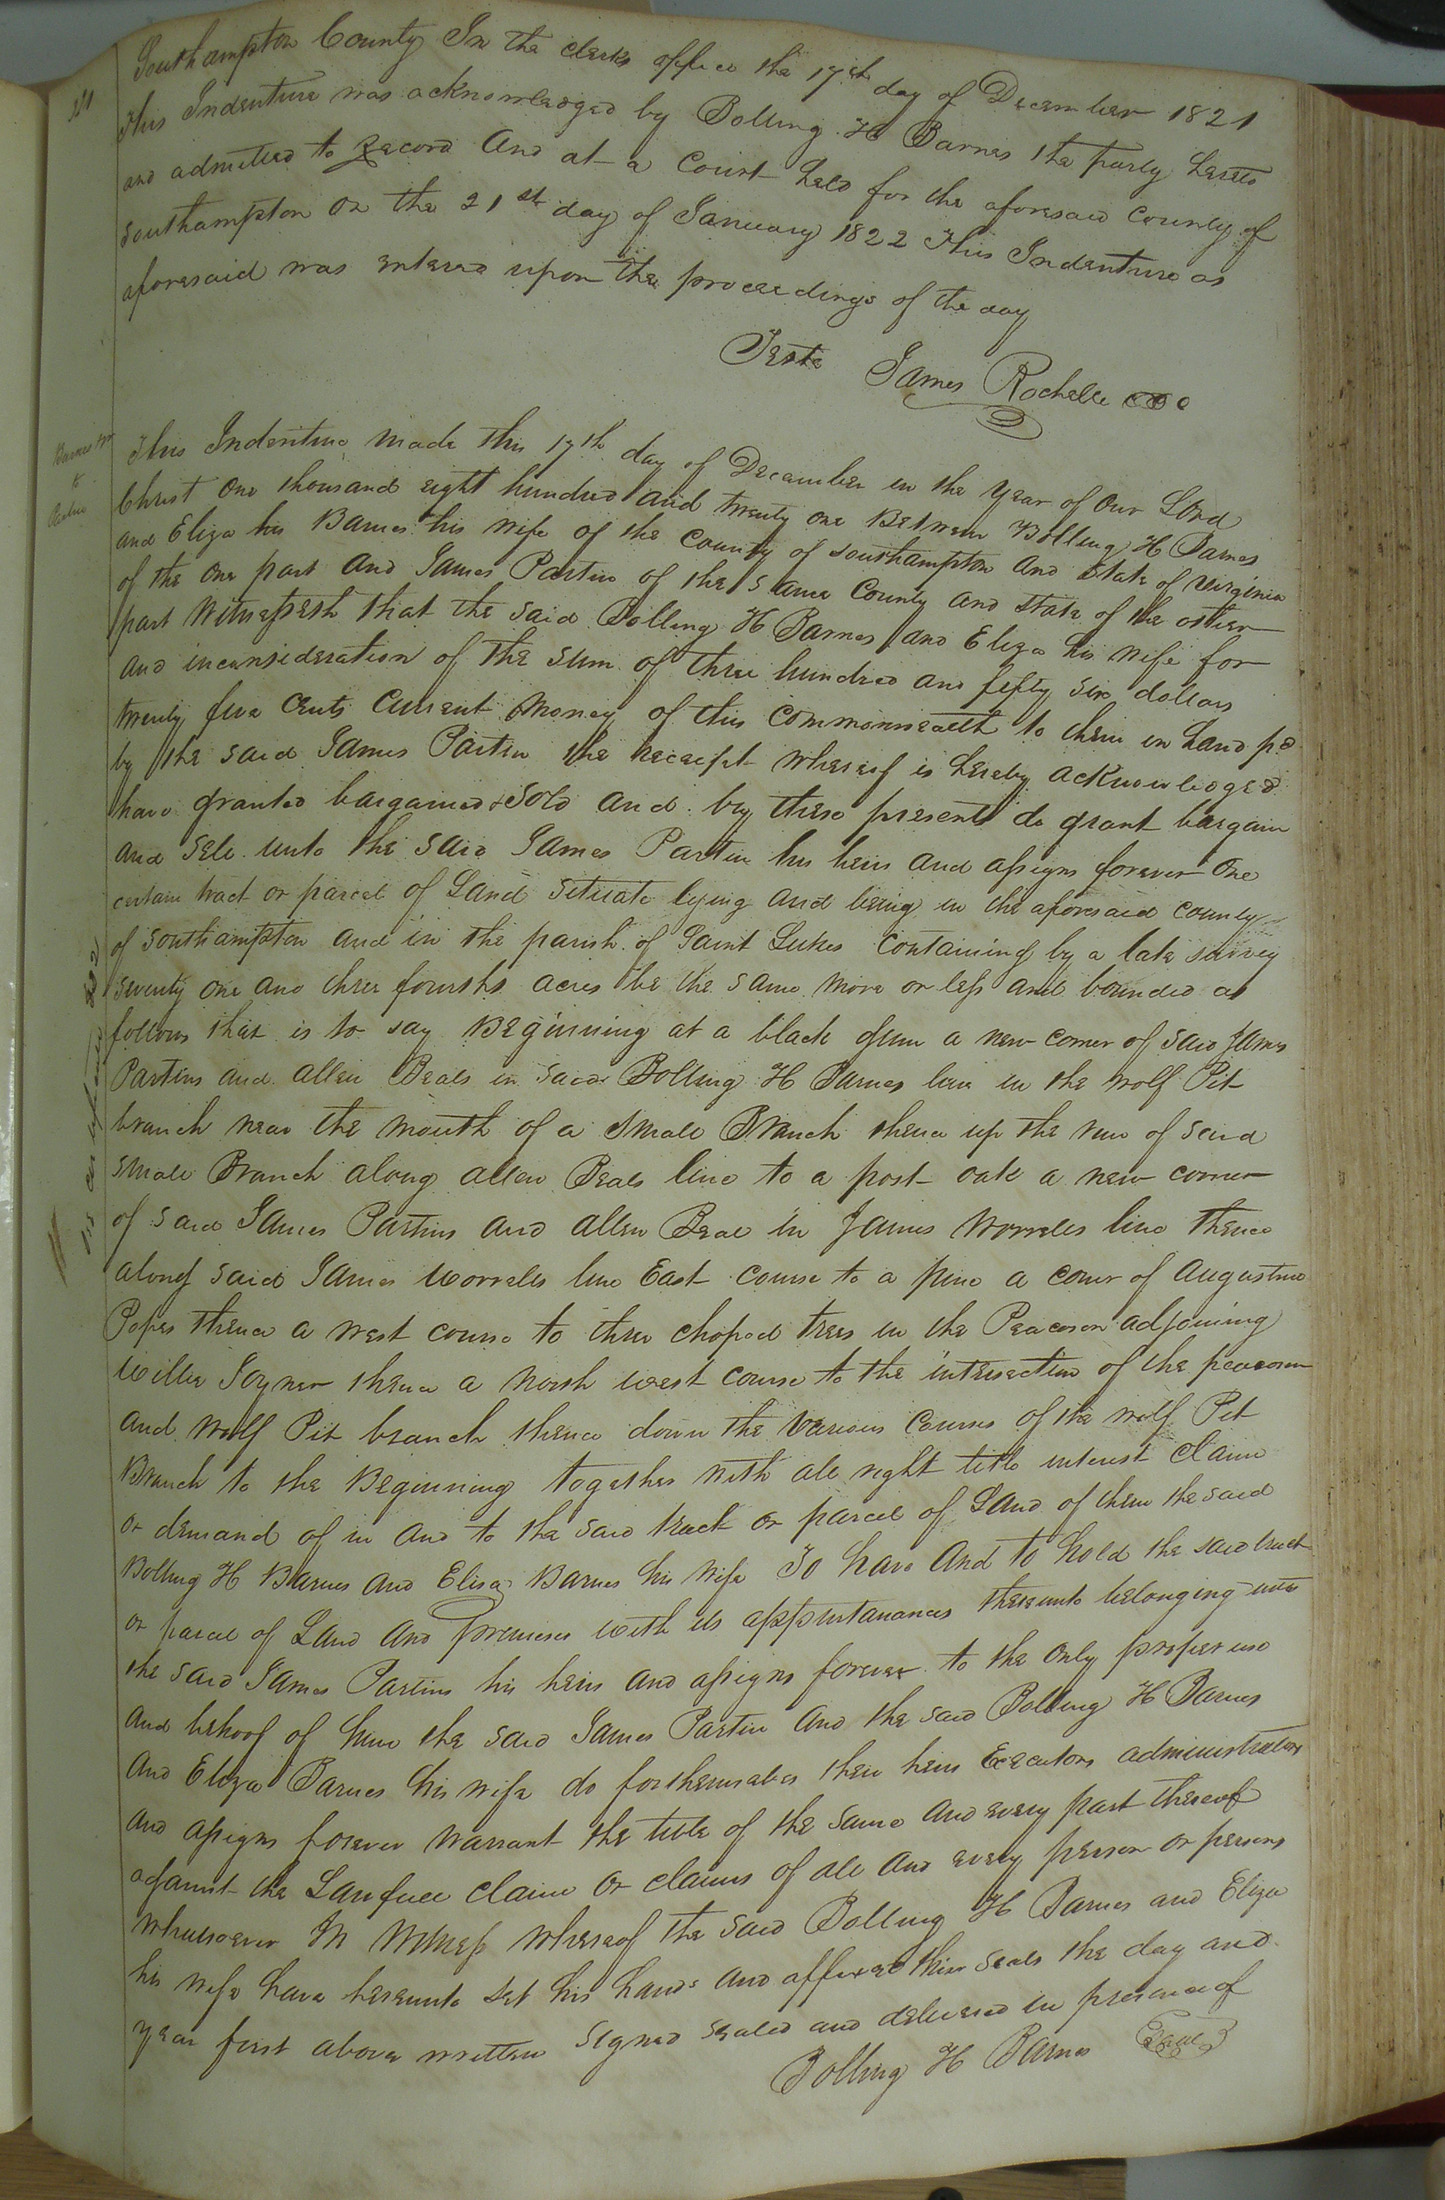 Southampton County In the clerks office the 17th day of December 1821
This Indenture was acknowledged by Bolling H Barnes the party hereto
and admitted to Record And at a Court held for the aforesaid County of
Southampton on the 21st day of January 1822 This Indenture as
aforesaid was entered upon the proceedings of the day
Teste James Rochelle
Barnes
to
This Indenture made this 17th day of December in the year of our Lord
Christ one thousand eight hundred and twenty one Between Bolling H Barnes
and Eliza his Barnes his wife of the County of Southampton and State of Virginia
of the one part and James Partin of the same County and State of the other
part Witnesseth that the said Bolling H Barnes and Eliza his wife for
and inconsideration of the sum of three hundred and fifty six dollars
twenty five cents current money of this commonwealth to them in hand pd
by the said James Partin the receipt whereof is hereby acknowledged
have granted bargained & sold and by these presents do grant bargain
and sell unto the said James Partin his heirs and assigns forever one
certain tract or parcel of Land situate lying and being in the aforesaid County
of Southampton and in the parish of Saint Lukes containing by a late survey
seventy one and three fourths acres be the same more or less and bounded as
follows that is to say Beginning at a black gum a new corner of said James
Partins and allen Beals in said Bolling H Barnes line in the wolf Pit
branch near the mouth of a small Branch thence up the run of said
small Branch along allen Beals line to a post oak a new corner
of said James Partins and allen Beal in James Worrells line thence
along said James Worrells line East course to a pine a corner of Augustine
Popes thence a west course to three choped trees in the Peacoson adjoining
Willie Joyner thence a north west course to the intersection of the peacoson
and Wolf Pit branch thence down the various courses of the wolf Pit
Branch to the Beginning together with all right title interest claim
or demand of in and to the said track or parcel of Land of them the said
Bolling H Barnes and Eliza Barnes his wife To have and to hold the said tract
or parcel of Land and premises with its appurtanances thereunto belonging unto
the said James Partins his heirs and assigns forever to the only proper use
and behoof of him the said James Partin and the said Bolling H Barnes
and Eliza Barnes his wife do for themselves their heirs Executors administrators
and assigns forever warrant the title of the same and every part thereof
against the Lawfull claim or claims of all and every person or persons
whatsoever In Witness whereof the said Bolling H Barnes and Eliza
his wife have hereunto set his hands and affixed their seals the day and
year first above written Signed sealed and delivered in presence of
Bolling H Barnes Seal